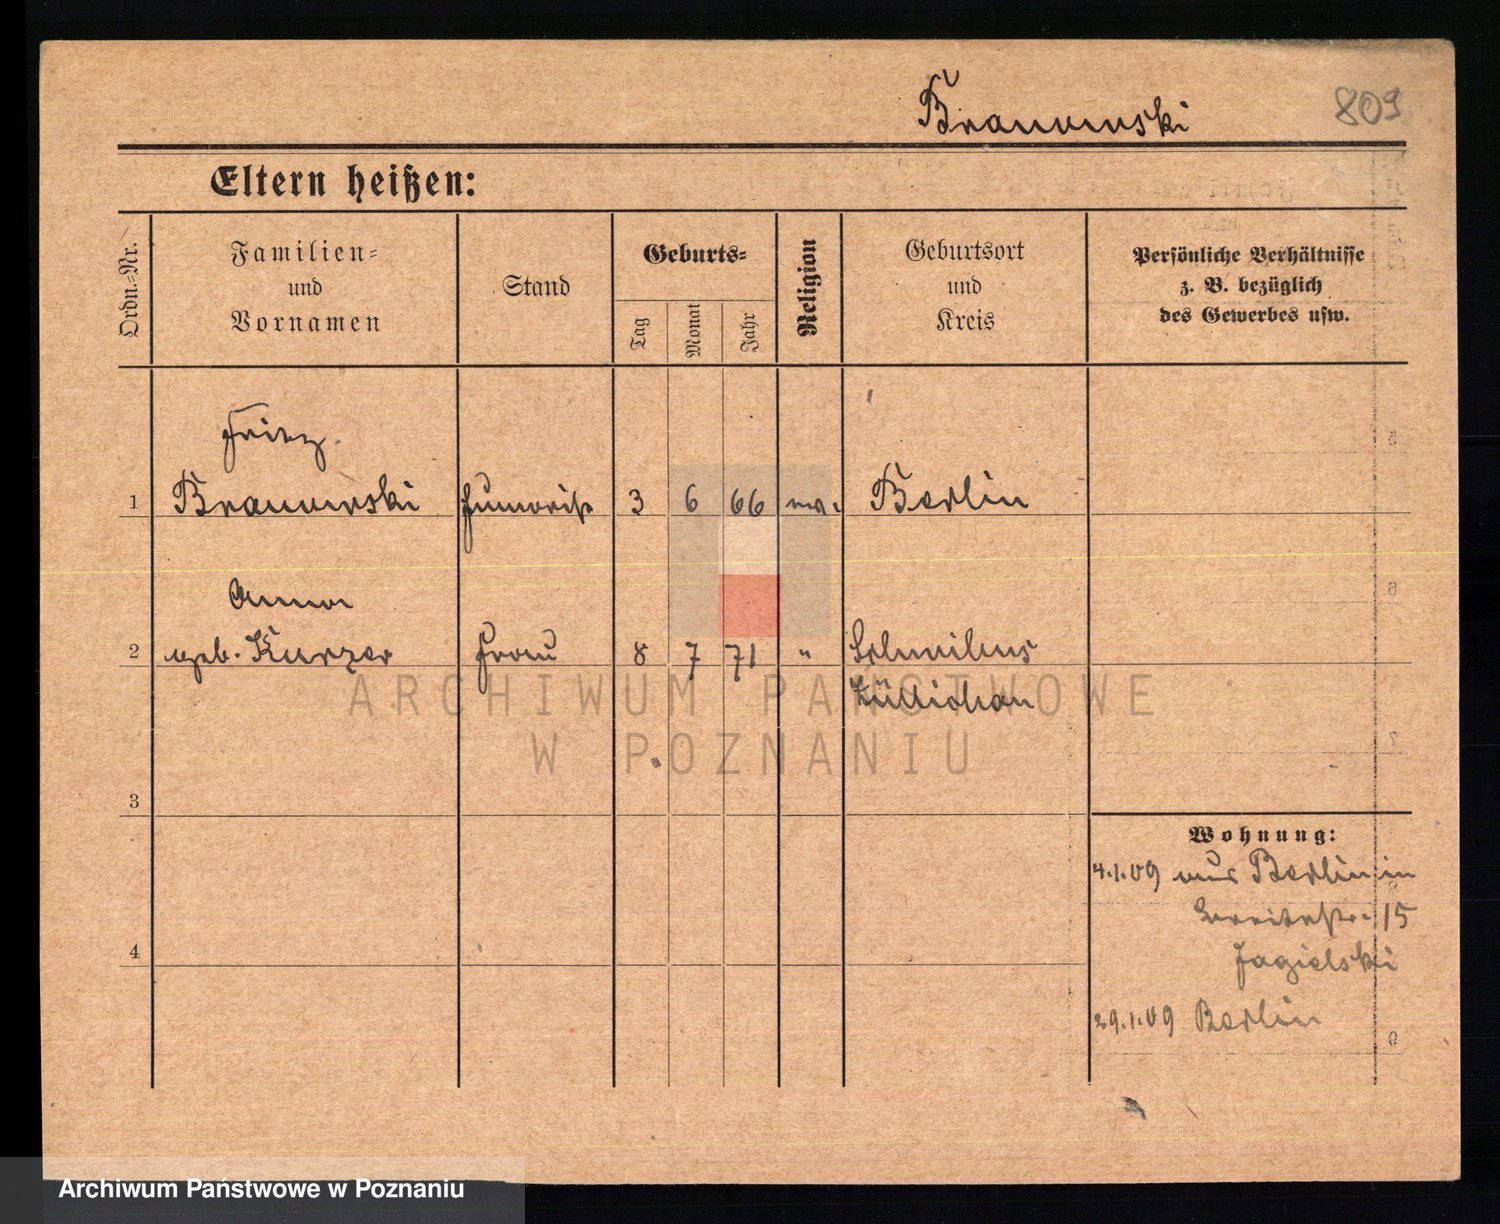 Branunski
809
Eltern heißen:
Ordn.-Nr.
Familien-
und
Vornamen
Stand
Geburts-
Tag
Monat
Jahr
Religion
Geburtsort
und
Kreis
Persönliche Verhältnisse
z. B. bezüglich
des Gewerbes usw.
1
Fritz
Branunski
Humorist
3
6
66
Berlin
2
Anna
geb. Kurzer
Frau
8
7
71
"
Züllichau
3
4
Wohnung:
4.1.09 aus Berlin in
Breitestr. 15
Jagielski
29.1.09 Berlin
ARCHIWUM PAŃSTWOWE
W POZNANIU
Archiwum Państwowe w Poznaniu